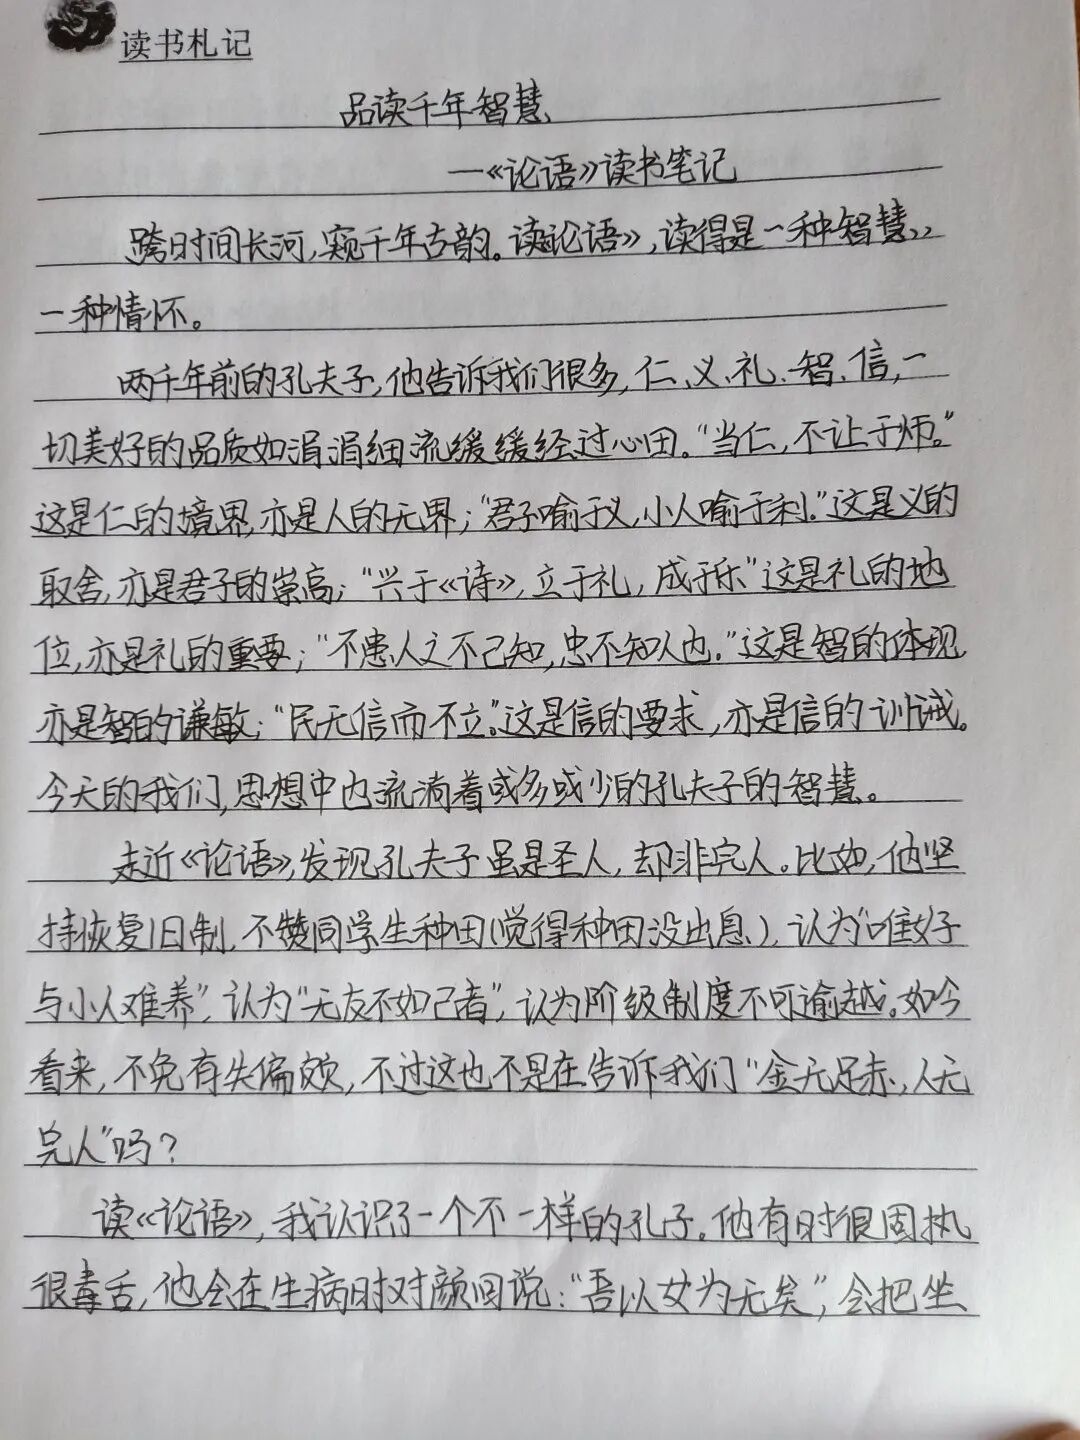 读书札记
品读千年智慧、
—《论语》读书笔记
跨时间长河,窥千年古韵。读论语》,读得是一种智慧、、
一种情怀。
两千年前的孔夫子,他告诉我们很多,仁、义、礼、智、信,一
切美好的品质如涓涓细流缓缓经过心田。“当仁,不让于师。”
这是仁的境界,亦是人的无界;“君子喻于义,小人喻于利.”这是义的
取舍,亦是君子的崇高;“兴于《诗》,立于礼,成于乐”这是礼的地
位,亦是礼的重要;“不患人之不己知,患不知人也.”这是智的体现
亦是智的谦敏;“民无信而不立”.这是信的要求,亦是信的训诫。
今天的我们,思想中也流淌着或多或少的孔夫子的智慧。
走近《论语》,发现孔夫子虽是圣人,却非完人。比如,他坚
持恢复旧制,不赞同学生种田(觉得种田没出息),认为“唯女子
与小人难养”,认为“无友不如己者”,认为阶级制度不可逾越。如今
看来,不免有失偏颇,不过这也不是在告诉我们“金无足赤,人无
完人”吗?
读《论语》,我认识了一个不一样的孔子.他有时很固执
很毒舌,他会在生病时对颜回说:“吾以女为无矣”,会把坐